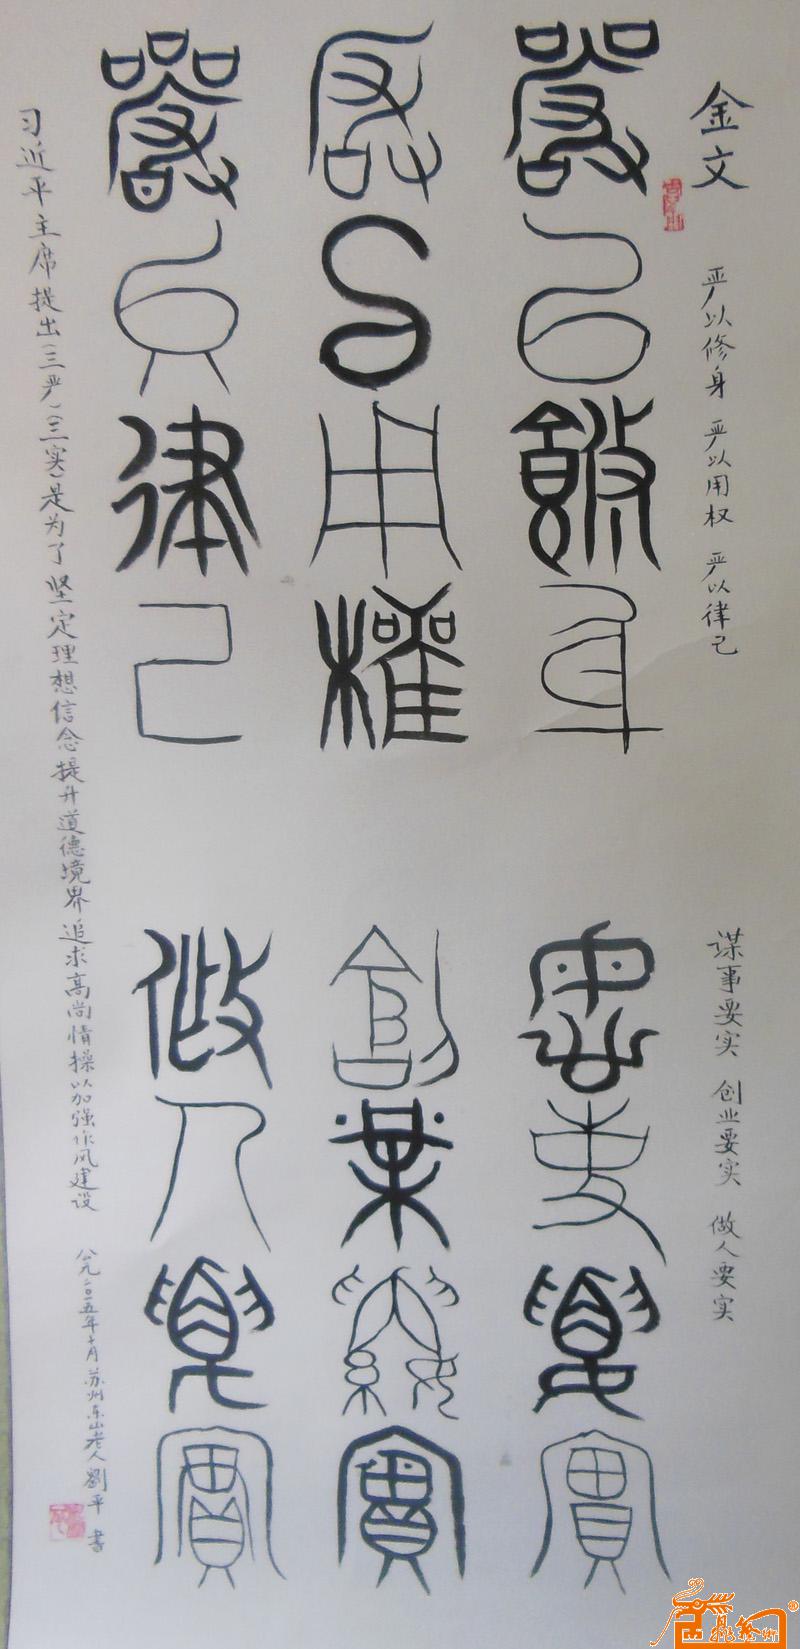 金文
严以修身 严以用权 严以律己
谋事要实 创业要实 做人要实
嚴以修身
嚴以用權
嚴以律己
謀事要實
創業要實
做人要實
习近平主席提出(三严)(三实)是为了坚定理想信念提升道德境界追求高尚情操以加强作风建设
公元二〇一五年十月苏州东山老人劉平 書